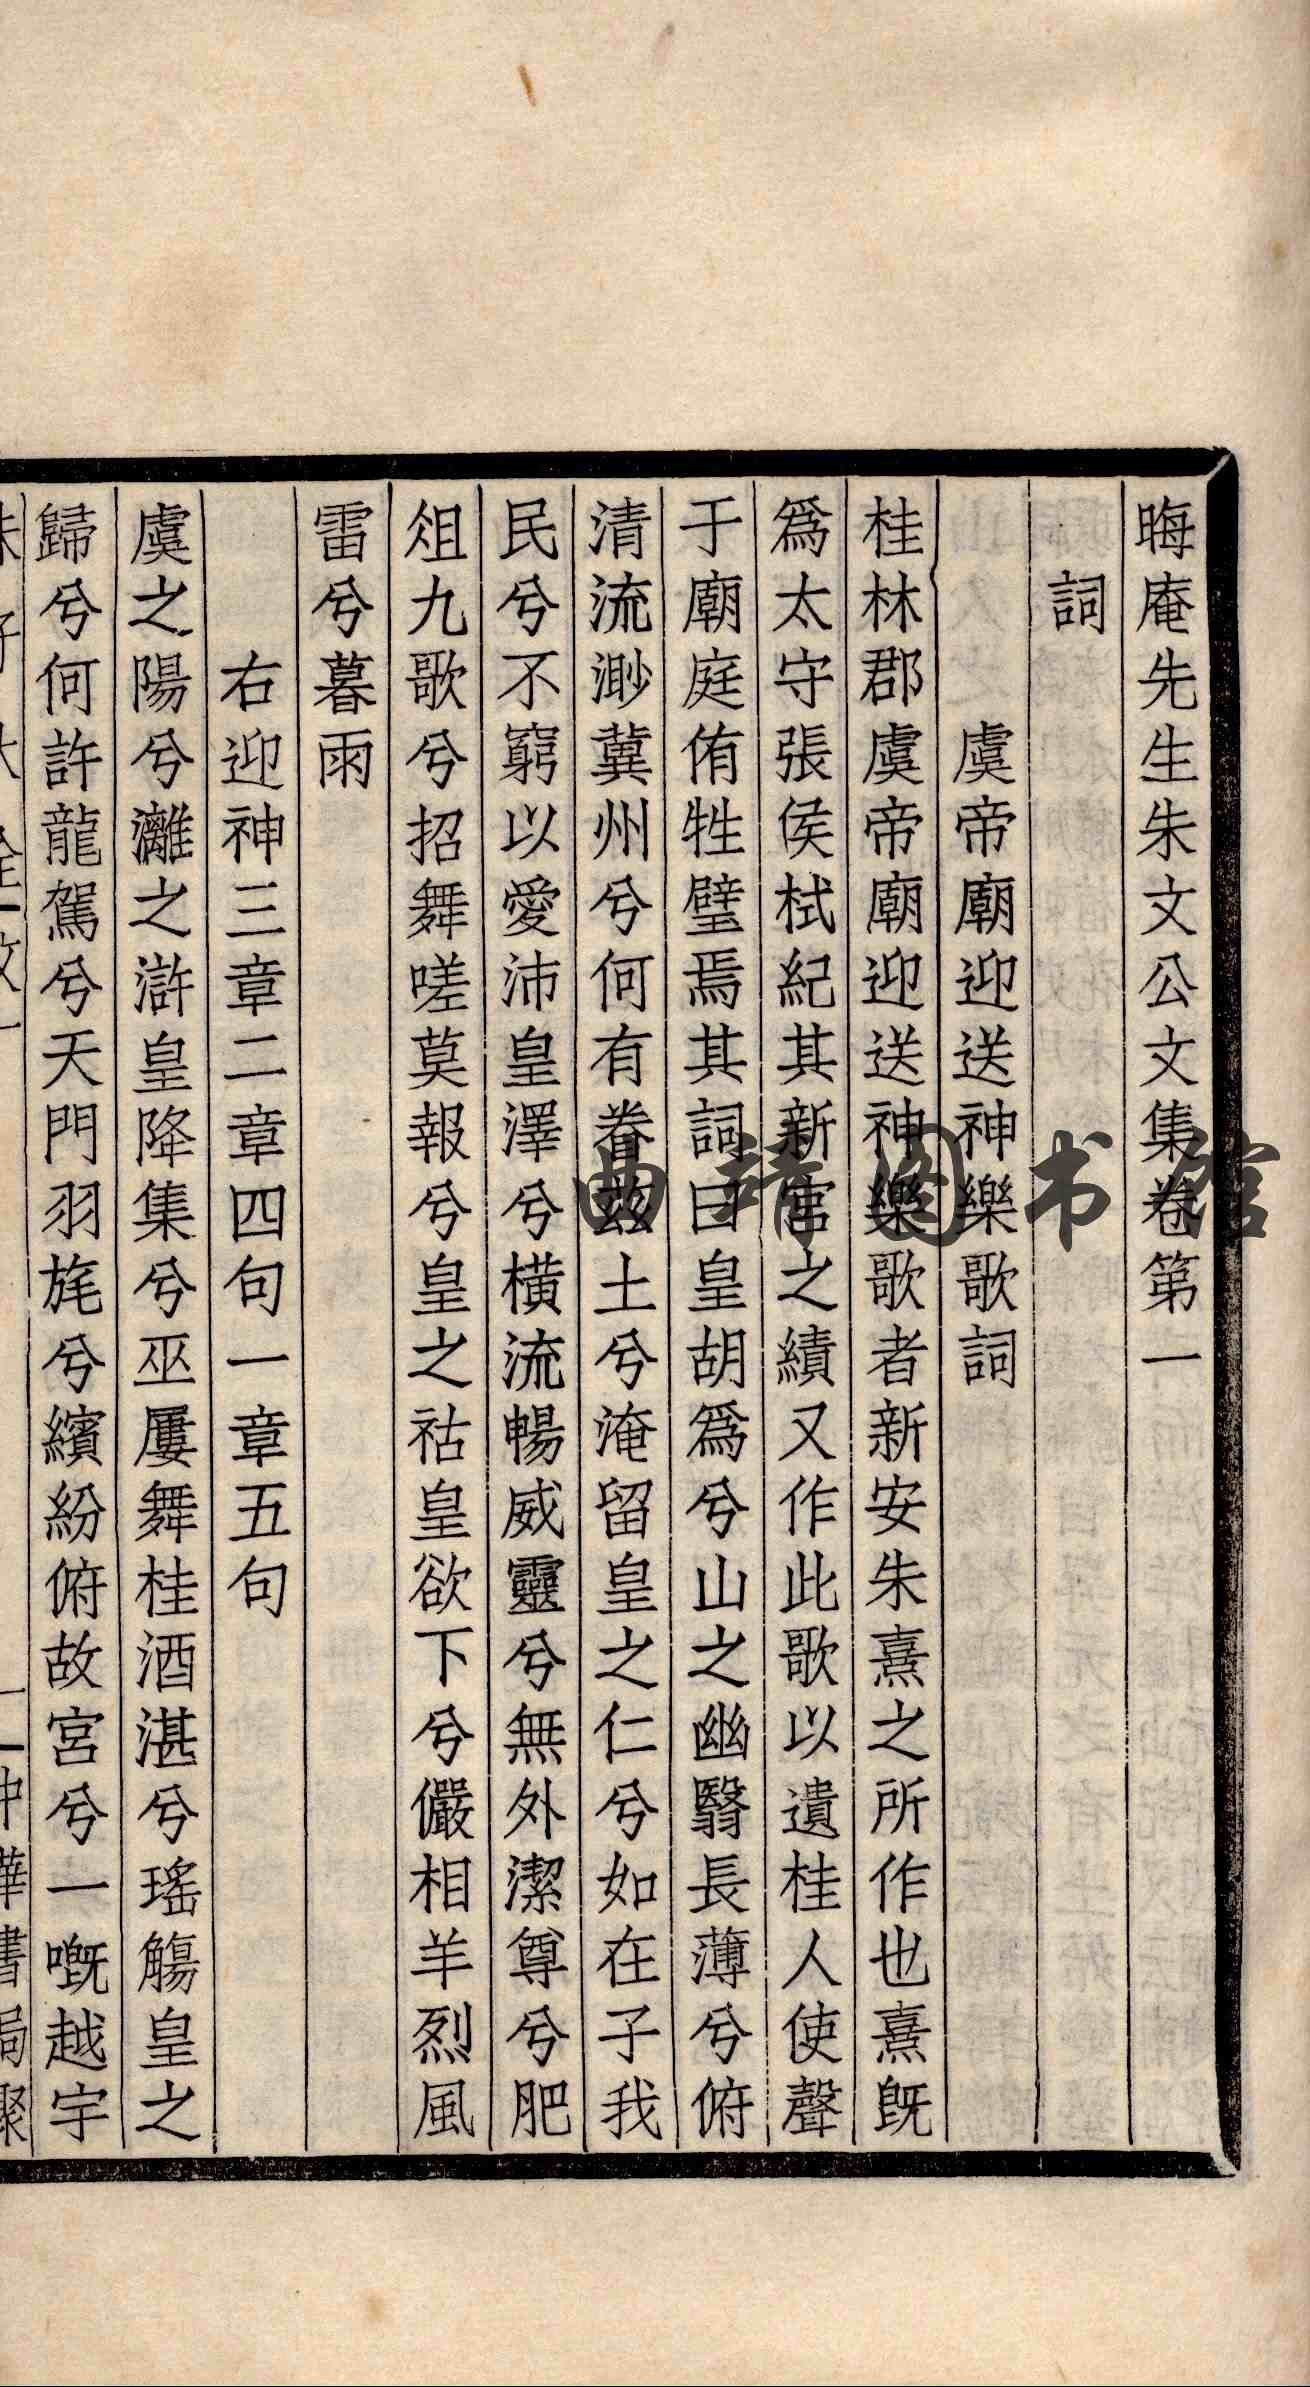 晦庵先生朱文公文集卷第一
詞
虞帝廟迎送神樂歌詞
桂林郡虞帝廟迎送神樂歌者新安朱熹之所作也熹旣
爲太守張侯栻紀其新宮之績又作此歌以遺桂人使聲
于廟庭侑牲璧焉其詞曰皇胡爲兮山之幽翳長薄兮俯
清流渺冀州兮何有眷茲土兮淹留皇之仁兮如在子我
民兮不窮以愛沛皇澤兮橫流暢威靈兮無外潔尊兮肥
俎九歌兮招舞嗟莫報兮皇之祜皇欲下兮儼相羊烈風
雷兮暮雨
右迎神三章二章四句一章五句
虞之陽兮灕之滸皇降集兮巫屢舞桂酒湛兮瑤觴皇之
歸兮何許龍駕兮天門羽旄兮繽紛俯故宮兮一嘅越宇
朱子大全 文一
中華書局聚
曲靖图书馆